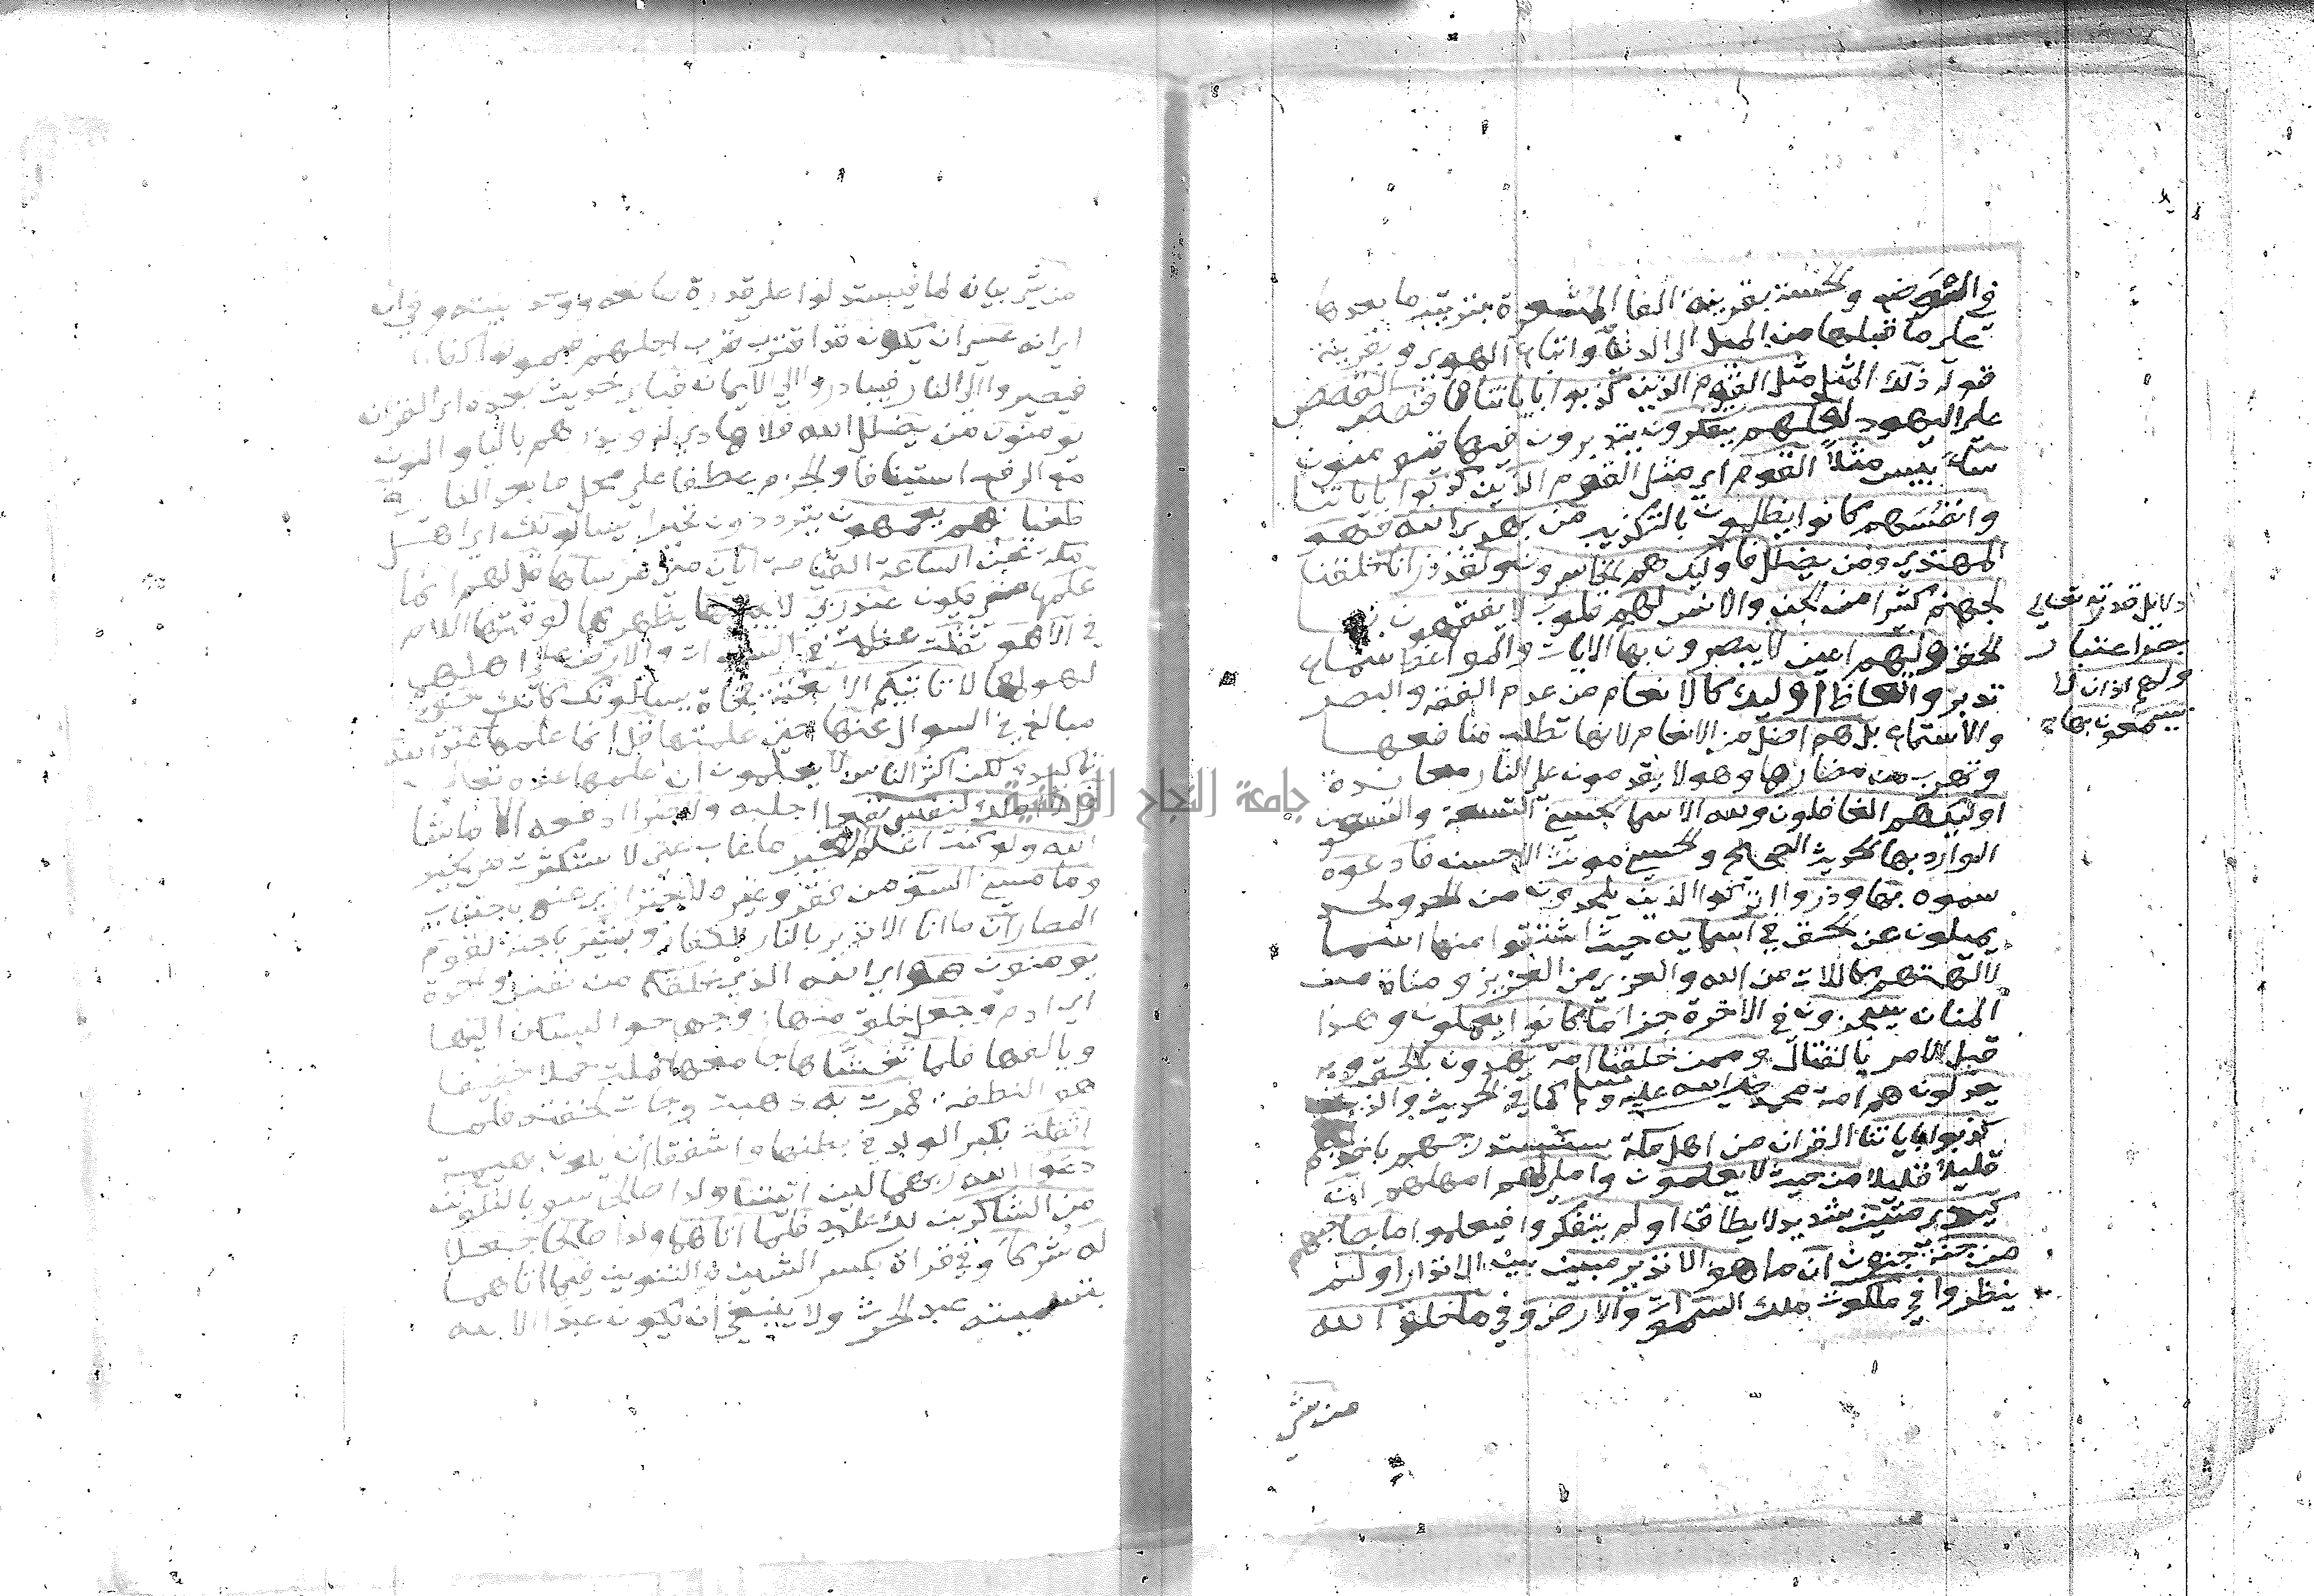 في الشرفضع ولخسته بقرينة الفا المشعرة بترتيب ما بعدها
على ما قبلها من الميل الى الدنيا واتباع الهوى وبقرينة
قوله ذلك المثل مثل القوم الذين كذبوا باياتنا فاقصص القصص
على اليهود لعلهم يتفكرون يتدبرون فيها فيومنون
سآء بيس مثلاً القوم اي مثل القوم الذين كذبوا باياتنا
وانفسهم كانوا يظلمون بالتكذيب من يهد الله فهو
المهتدي ومن يضلل فاوليك هم الخاسرون ولقد ذرانا خلقنا
لجهنم كثيرا من الجن والانس لهم قلوب لا يفقهون بها
الحق ولهم اعين لا يبصرون بها
دلايل قدرته تعالى
بصر اعتبار
ولهم اذان لا
يسمعون بها
الايات والمواعظ سماع
تدبر واتعاظ اوليك كالانعام من عدم الفقه والبصر
والاستماع بل هم اضل من الانعام لانها تطلب منافعها
وتهرب من مضارها وهولا يقدمون على النار معاندة
اوليك هم الغافلون ولله الاسما الحسنى التسعة والتسعون
الوارد بها الحديث الصحاح والحسنى مونث الاحسن فادعوه
سموه بها وذروا اتركوا الذين يلحدون من الحد ولحد
يميلون عن الحق في اسمايه حيث اشتقوا منها اسما
لالهتهم كاللات من الله والعزى من العزيز ومناة من
المنان سيجزون في الاخرة جزا ما كانوا يعملون وهذا
قبل الامر بالقتال وممن خلقنا امة يهدون بالحق وبه
يعدلون هم امة محمد صلى الله عليه وسلم كما في الحديث والذين
كذبوا باياتنا القران من اهل مكة سنستدرجهم ناخذهم
قليلا قليلا من حيث لا يعلمون واملي لهم امهلهم ان
كيدي متين شديد لا يطاق اولم يتفكروا فيعلموا ما بصاحبهم
من جنة جنون ان ما هو الا نذير مبين بين الانذار اولم
ينظروا في ملكوت ملك السموات والارض وفي ما خلق الله
من شي
من شي بيان لما فيستدلوا على قدرة وفي ان
اي انه عسى ان يكون قد اقترب قرب اجلهم فيموتوا كفارا
فيصيروا الى النار فيبادروا الى الايمان فباي حديث بعده اي القران
يومنون من يضلل الله فلا هادي له ويذرهم باليا والنون
مع الرفع استينافا والجزم عطفا على محل ما بعد الفا في
طغيانهم يعمهون يترددون تحيرا يسالونك اي اهل
مكة عن الساعة القيامة ايان متى مرساها قل لهم انما
علمها متى تكون عند ربي لا يجليها يظهرها لوقتها اللام
في الا هو ثقلت عظمت في السموات والارض على اهلها
لهولها لا تاتيكم الا بغتة فجاة يسالونك كانك حفي
مبالغ في السوال عنها حتى علمتها قل انما علمها عند الله
تاكيد ولكن اكثر الناس لا يعلمون ان علمها عنده تعالى
قل لا املك لنفسي نفعا اجلبه ولا ضرا ادفعه الا ما شا
الله ولو كنت اعلم الغيب ما غاب عني لاستكثرت من الخير
وما مسني السو من فقر وغيره لاحترازي عنه باجتناب
المضار ان ما انا الا نذير بالنار للكفار وبشير بالجنة لقوم
يومنون هو اي الله الذي خلقكم من نفس واحدة
اي ادم وجعل خلق منها زوجها حوا ليسكن اليها
ويالفها فلما تغشاها جامعها حملت حملا خفيفا
هو النطفة فمرت به ذهبت وجات لخفته فلما
اثقلت بكبر الولد في بطنها واشفقا ان يكون بهيمة
دعوا الله ربهما لين اتيتنا ولدا صالحا سويا لنكونن
من الشاكرين لك عليه فلما اتاهما ولدا صالحا جعلا
له شركا وفي قراة بكسر الشين والتنوين فيما اتاهما
بتسميته عبد الحرث ولا ينبغي ان يكون عبدا الا لله
جامعة النجاح الوطنية